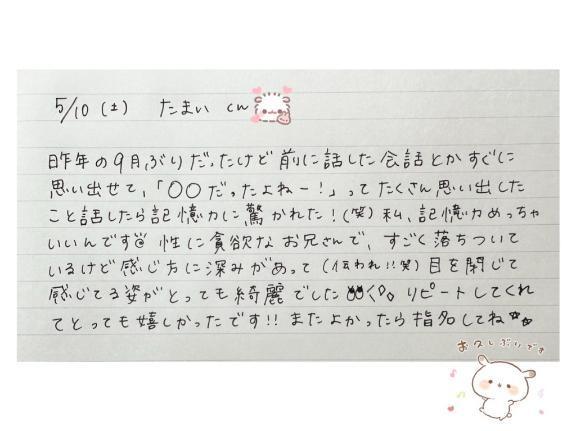 5/10 (土) たまい cん
昨年の9月ぶりだったけど前に話した会話とかすぐに
思い出せて、「〇〇だったよねー!」ってたくさん思い出した
こと話したら記憶力に驚かれた!(笑)私、記憶力めっちゃ
いいんです 性に貪欲なお兄さんで、すごく落ちついて
いるけど感じ方に深みがあって(伝われ!!笑)目を閉じて
感じてる姿がとっても綺麗でした リピートしてくれ
てとっても嬉しかったです!! またよかったら指名してね
お久しぶりです